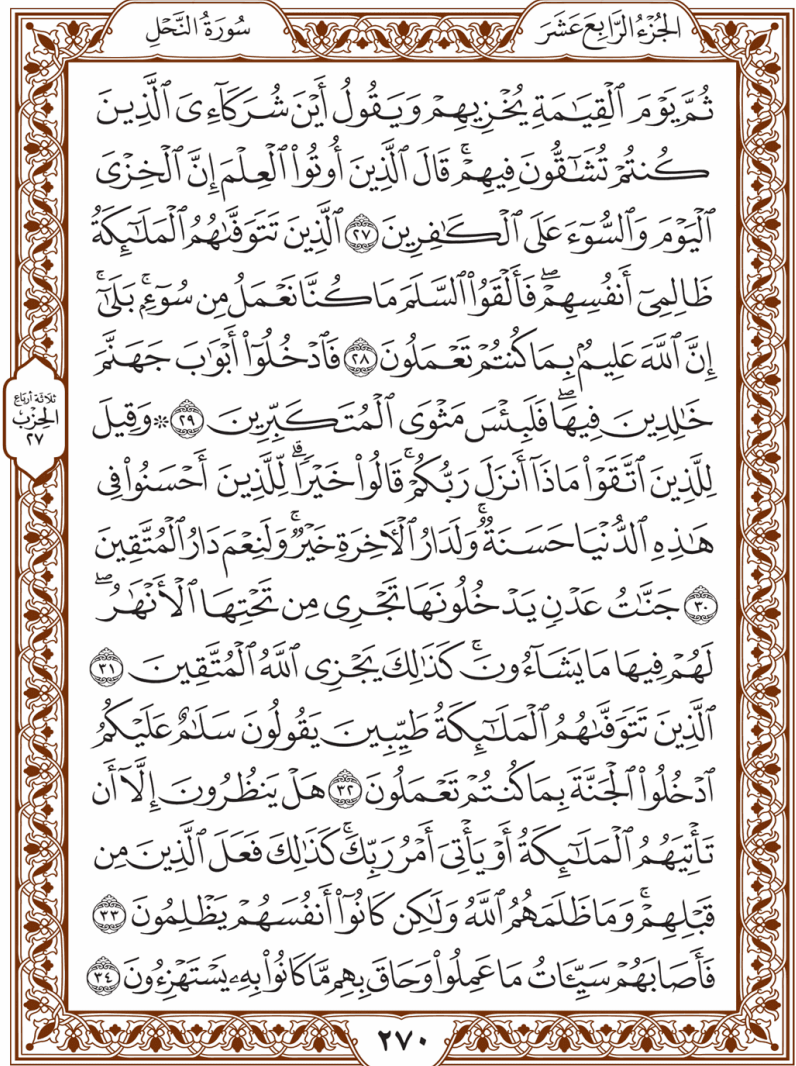 الجُزْءُ الرَّابِعَ عَشَرَ
سُورَةُ النَّحْلِ
ثُمَّ يَوْمَ ٱلْقِيَٰمَةِ يُخْزِيهِمْ وَيَقُولُ أَيْنَ شُرَكَآءِىَ ٱلَّذِينَ
كُنتُمْ تُشَٰٓقُّونَ فِيهِمْۚ قَالَ ٱلَّذِينَ أُوتُوا۟ ٱلْعِلْمَ إِنَّ ٱلْخِزْىَ
ٱلْيَوْمَ وَٱلسُّوٓءَ عَلَى ٱلْكَٰفِرِينَ ٢٧ ٱلَّذِينَ تَتَوَفَّىٰهُمُ ٱلْمَلَٰٓئِكَةُ
ظَالِمِىٓ أَنفُسِهِمْۖ فَأَلْقَوُا۟ ٱلسَّلَمَ مَا كُنَّا نَعْمَلُ مِن سُوٓءٍۭۚ بَلَىٰٓۚ
إِنَّ ٱللَّهَ عَلِيمٌۢ بِمَا كُنتُمْ تَعْمَلُونَ ٢٨ فَٱدْخُلُوٓا۟ أَبْوَٰبَ جَهَنَّمَ
خَٰلِدِينَ فِيهَاۖ فَلَبِئْسَ مَثْوَى ٱلْمُتَكَبِّرِينَ ٢٩ ۞ وَقِيلَ
لِلَّذِينَ ٱتَّقَوْا۟ مَاذَآ أَنزَلَ رَبُّكُمْۚ قَالُوا۟ خَيْرًاۗ لِّلَّذِينَ أَحْسَنُوا۟ فِى
هَٰذِهِ ٱلدُّنْيَا حَسَنَةٌۚ وَلَدَارُ ٱلْءَاخِرَةِ خَيْرٌۚ وَلَنِعْمَ دَارُ ٱلْمُتَّقِينَ
٣٠ جَنَّٰتُ عَدْنٍ يَدْخُلُونَهَا تَجْرِى مِن تَحْتِهَا ٱلْأَنْهَٰرُۖ
لَهُمْ فِيهَا مَا يَشَآءُونَۚ كَذَٰلِكَ يَجْزِى ٱللَّهُ ٱلْمُتَّقِينَ ٣١
ٱلَّذِينَ تَتَوَفَّىٰهُمُ ٱلْمَلَٰٓئِكَةُ طَيِّبِينَ يَقُولُونَ سَلَٰمٌ عَلَيْكُمُ
ٱدْخُلُوا۟ ٱلْجَنَّةَ بِمَا كُنتُمْ تَعْمَلُونَ ٣٢ هَلْ يَنظُرُونَ إِلَّآ أَن
تَأْتِيَهُمُ ٱلْمَلَٰٓئِكَةُ أَوْ يَأْتِىَ أَمْرُ رَبِّكَۚ كَذَٰلِكَ فَعَلَ ٱلَّذِينَ مِن
قَبْلِهِمْۚ وَمَا ظَلَمَهُمُ ٱللَّهُ وَلَٰكِن كَانُوٓا۟ أَنفُسَهُمْ يَظْلِمُونَ ٣٣
فَأَصَابَهُمْ سَيِّـَٔاتُ مَا عَمِلُوا۟ وَحَاقَ بِهِم مَّا كَانُوا۟ بِهِۦ يَسْتَهْزِءُونَ ٣٤
ثلاثة أرباع
الحِزْب
٢٧
٢٧٠